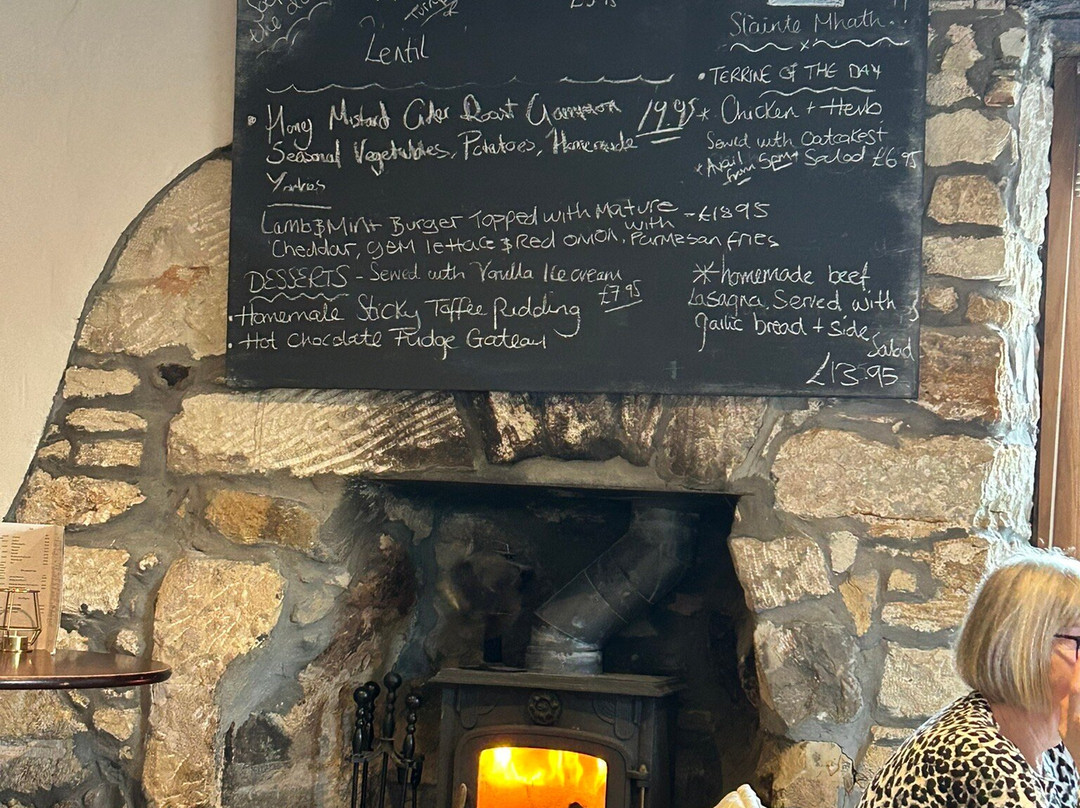 the
Lentil
Honey Mustard Cider Roast Gammon 19.95
Seasonal Vegetables, Potatoes, Homemade
Yorkies
Lamb & Mint Burger Topped with Mature - £18.95
Cheddar, gem lettuce & Red onion, with Parmesan fries
DESSERTS - Served with Vanilla Ice cream
£7.95
• Homemade Sticky Toffee Pudding
• Hot Chocolate Fudge Gateau
Slàinte Mhath
• TERRINE OF THE DAY
* Chicken + Herb
Served with Oatcakes +
Salad £6.95
* Avail from 5pm
* homemade beef
Lasagna. Served with
garlic bread + side
Salad
£13.95